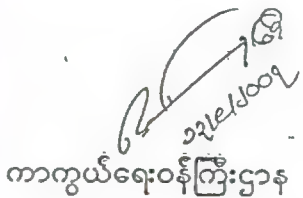 ၁၃/၉/၂၀၀၇
ကာကွယ်ရေးဝန်ကြီးဌာန